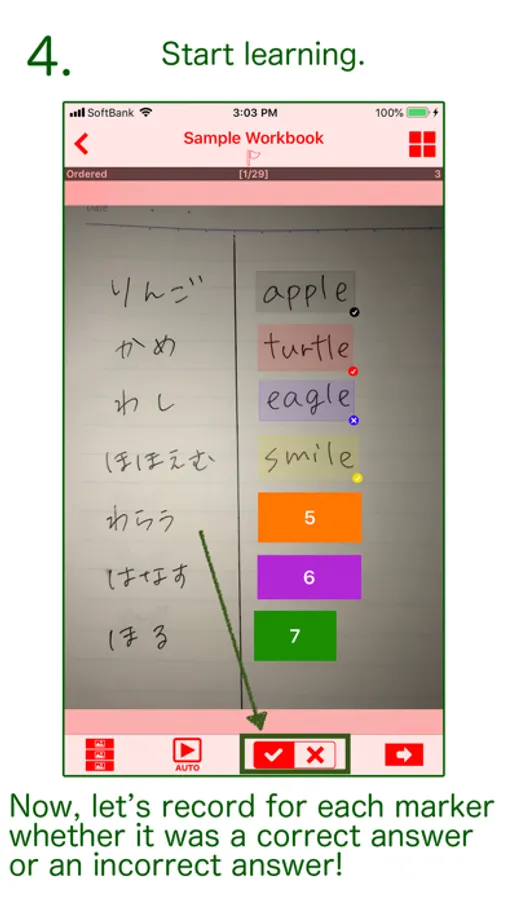 4.
Start learning.
SoftBank 3:03 PM 100%
Sample Workbook
Ordered [1/29] 3
Date
りんご apple
かめ turtle
わし eagle
ほほえむ smile
わらう 5
はなす 6
ほる 7
AUTO
Now, let's record for each marker
whether it was a correct answer
or an incorrect answer!